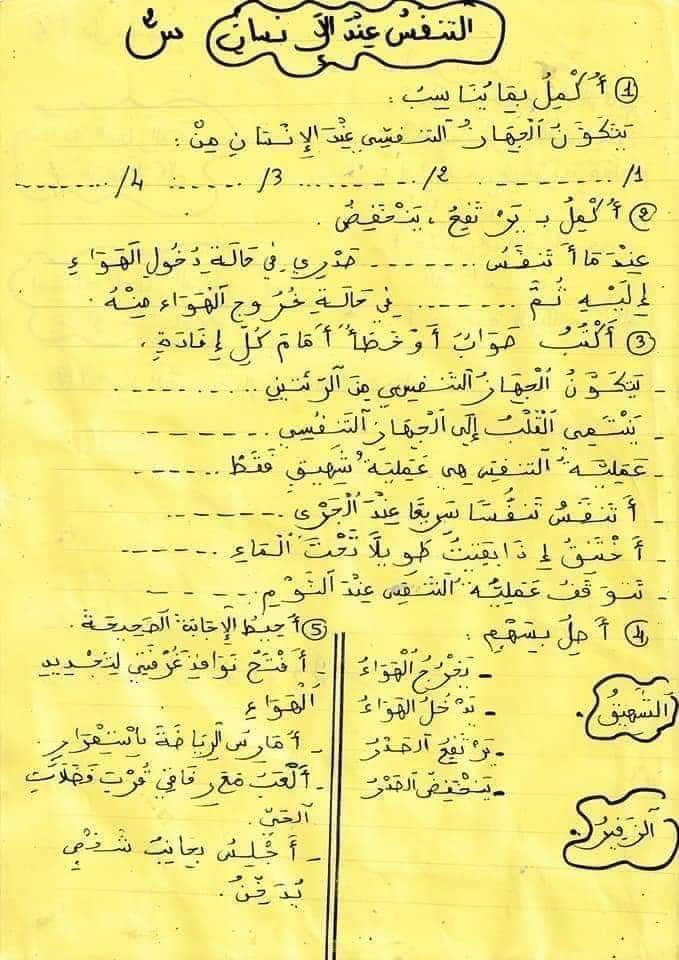 التنفس عند الإنسان س2
① أُكْمِلُ بِمَا يُنَاسِبُ :
يَتَكَوَّنُ الْجِهَازُ التَّنَفُّسِي عِنْدَ الإِنْسَانِ مِنْ :
1/ ........ 2/ ........ 3/ ........ 4/ ........
② أُكْمِلُ بـ يَرْتَفِعُ ، يَنْخَفِضُ .
عِنْدَمَا أَتَنَفَّسُ ........ صَدْرِي فِي حَالَةِ دُخُولِ الْهَوَاءِ
إِلَيْهِ ثُمَّ ........ فِي حَالَةِ خُرُوجِ الْهَوَاء مِنْهُ .
③ أَكْتُبُ صَوَابٌ أَوْ خَطَأٌ أَمَامَ كُلِّ إِفَادَةٍ .
- يَتَكَوَّنُ الْجِهَازُ التَّنَفُّسِي مِنَ الرِّئَتَيْنِ ........
- يَنْتَمِي الْقَلْبُ إِلَى الْجِهَازِ التَّنَفُّسِي ........
- عَمَلِيَّةُ التَّنَفُّسِ هِيَ عَمَلِيَّةُ شَهِيقٍ فَقَطْ ........
- أَتَنَفَّسُ تَنَفُّسًا سَرِيعًا عِنْدَ الْجَرْيِ ........
- أَخْتَنِقُ إِذَا بَقِيتُ طَوِيلاً تَحْتَ الْمَاءِ ........
- تَتَوَقَّفُ عَمَلِيَّةُ التَّنَفُّسِ عِنْدَ النَّوْمِ ........
④ أَصِلُ بِسَهْمٍ :
الشَّهِيقُ .
الزَّفِيرُ .
- يَخْرُجُ الْهَوَاءُ
- يَدْخُلُ الْهَوَاءُ
- يَرْتَفِعُ الصَّدْرُ
- يَنْخَفِضُ الصَّدْرُ
⑤ أُحِيطُ الإِجَابَةَ الصَّحِيحَةَ .
- أَفْتَحُ نَوَافِذَ غُرْفَتِي لِتَجْدِيدِ
الْهَوَاءِ
- أُمَارِسُ الرِّيَاضَةَ بِاسْتِمْرَارٍ
- أَلْعَبُ مَعَ رِفَاقِي قُرْبَ فَضَلَاتِ
الْحَيِّ .
- أَجْلِسُ بِجَانِبِ شَخْصٍ
يُدَخِّنُ .